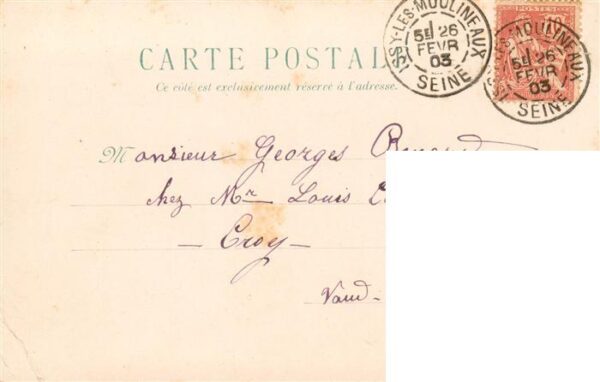 CARTE POSTALE
Ce côté est exclusivement réservé à l'adresse.
ISSY-LES-MOULINEAUX
5E 26
FEVR
03
SEINE
POSTES
ISSY-LES-MOULINEAUX
5E 26
FEVR
03
SEINE
Monsieur Georges
chez Mr Louis
— Croy —
Vaud.